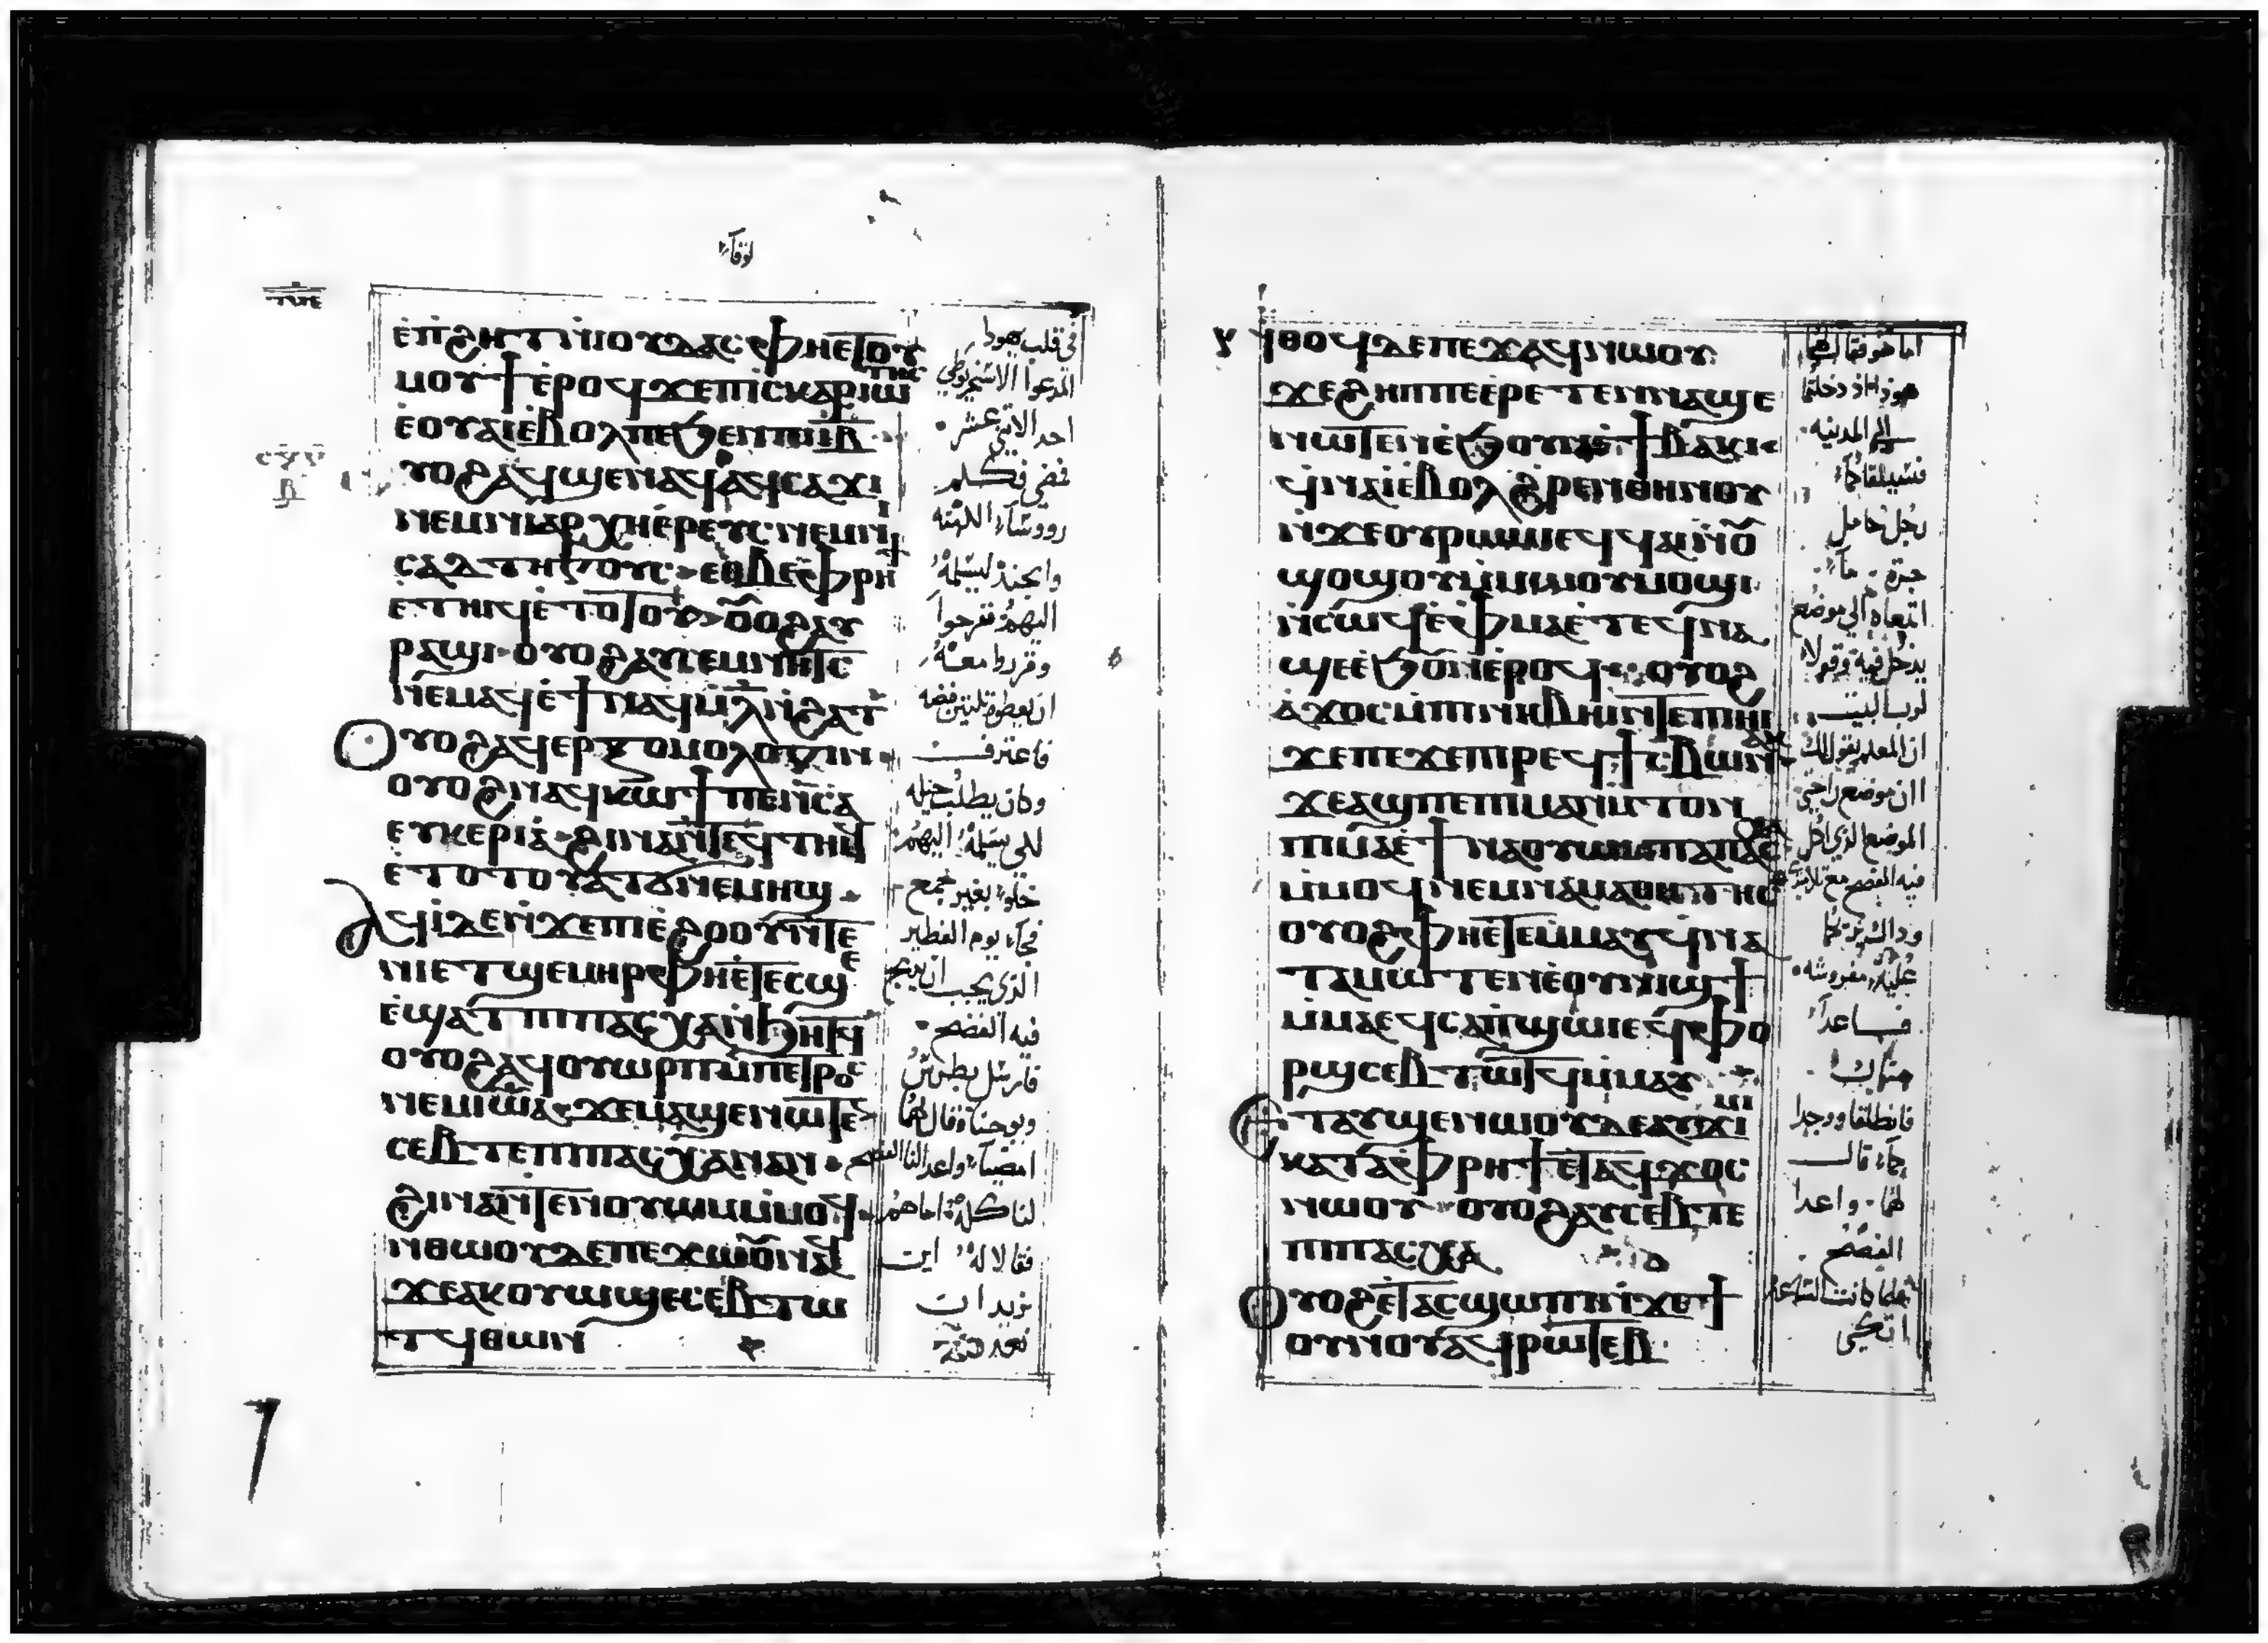 لوقا
ⲉ̀ⲡϩⲏⲧ ⲛ̀ⲓⲟⲩⲇⲁⲥ ⲫⲏⲉⲧⲟⲩ
ⲙⲟⲩϯ ⲉ̀ⲣⲟϥ ϫⲉ ⲡⲓⲥⲕⲁⲣⲓⲱⲧⲏⲥ
ⲉ̀ⲟⲩⲁⲓ ⲉ̀ⲃⲟⲗ ⲡⲉ ϧⲉⲛ ⲡⲓⲓⲃ
ⲩⲟϩ ⲁϥϣⲉⲛⲁϥ ⲁϥⲥⲁϫⲓ
ⲛⲉⲙ ⲛⲓⲁⲣⲭⲏⲉ̀ⲣⲉⲩⲥ ⲛⲉⲙ ⲛⲓ
ⲥⲁⲇⲧⲏⲅⲟⲩⲥ ⲉⲑⲃⲉ ⲫⲣⲏϯ
ⲉ̀ⲧⲏⲓϥ ⲉ̀ⲧⲟⲧⲟⲩ ⲟⲩⲟϩ ⲁⲩ
ⲣⲁϣⲓ ⲟⲩⲟϩ ⲁⲩⲥⲉⲙⲛⲏⲧⲥ
ⲛⲉⲙⲁϥ ⲉ̀ϯ ⲛⲁϥ ⲛ̀ⲗ̅ ⲛ̀ϩⲁⲧ
ⲟⲩⲟϩ ⲁϥⲉⲣⲝⲟⲙⲟⲗⲟⲅⲓⲛ
ⲟⲩⲟϩ ⲛⲁϥⲕⲱϯ ⲡⲉ ⲛ̀ⲥⲁ
ⲉⲩⲕⲉⲣⲓⲁ̀ ϩⲓⲛⲁ ⲛ̀ⲧⲉϥⲧⲏⲓϥ
ⲉ̀ⲧⲟⲧⲟⲩ ⲁⲧϭⲛⲉ ⲙⲏϣ
ⲁϥⲓ̀ ⲇⲉ ⲛ̀ϫⲉ ⲡⲓⲉ̀ϩⲟⲟⲩ ⲛ̀ⲧⲉ
ⲛⲓⲉⲧϣⲉⲙⲏⲣ ⲫⲏⲉ̀ⲧⲉⲥϣⲉ
ⲉ̀ϣⲁⲧ ⲡⲓⲡⲁⲥⲭⲁ ⲛ̀ϧⲏⲧϥ
ⲟⲩⲟϩ ⲁϥⲟⲩⲱⲣⲡ ⲙ̀ⲡⲉⲧⲣⲟⲥ
ⲛⲉⲙ ⲓⲱⲁ ϫⲉ ⲙⲁϣⲉⲛⲱⲧⲉⲛ
ⲥⲉⲃⲧⲉ ⲡⲓⲡⲁⲥⲭⲁ ⲛⲁⲛ
ϩⲓⲛⲁ ⲛ̀ⲧⲉⲛⲟⲩⲱⲙ ⲙ̀ⲙⲟϥ
ⲛ̀ⲑⲱⲟⲩ ⲇⲉ ⲡⲉϫⲱⲟⲩ ⲛⲁϥ
ϫⲉ ⲁⲕⲟⲩⲱϣ ⲉⲥⲉⲃⲧⲱ
ⲧϥ ⲑⲱⲛ
في قلب يهودا
المدعوا الاسخريوطي
احد الاثني عشر
فمضي فكلم
رووسآء الكهنه
والجند ليسلمه
اليهم ففرحوا
وقرروا معه
ان يعطوه ثلثين فضه
فاعترف
وكان يطلب حيله
لكي يسلمه اليهم
خلوه بغير جمع
فجآء يوم الفطير
الذي يجب ان يذبح
فيه الفصح
فارسل بطرس
ويوحنا وقال لهما
امضيآ واعدا لنا الفصح
لناكله اما هم
فقالا له اين
تريد ان
نعد
ⲛ̀ⲑⲟϥ ⲇⲉ ⲡⲉϫⲁϥ ⲛⲱⲟⲩ
ϫⲉ ϩⲏⲡⲡⲉ ⲉ̀ⲣⲉⲧⲉⲛⲛⲁϣⲉ
ⲛⲱⲧⲉⲛ ⲉ̀ϧⲟⲩⲛ ⲉ̀ϯⲃⲁⲕⲓ
ϥⲛⲁⲓ̀ ⲉ̀ⲃⲟⲗ ϩ̀ⲣⲉⲛ ⲑⲏⲛⲟⲩ
ⲛ̀ϫⲉ ⲟⲩⲣⲱⲙⲓ ⲉϥϥⲁⲓ ⲛ̀ⲟⲩ
ϣⲟϣⲟⲩ ⲙ̀ⲙⲱⲟⲩ ⲙⲟϣⲓ
ⲛ̀ⲥⲱϥ ⲉ̀ⲫⲙⲁ ⲉ̀ⲧⲉϥⲛⲁ
ϣⲉ ⲉ̀ϧⲟⲩⲛ ⲉ̀ⲣⲟϥ ⲟⲩⲟϩ
ⲁ̀ϫⲟⲥ ⲙ̀ⲡⲓⲛⲏⲃ ⲛ̀ⲧⲉ ⲡⲓⲏⲓ
ϫⲉ ⲡⲉϫⲉ ⲡⲓⲣⲉϥϯⲥⲃⲱ ⲛⲁⲕ
ϫⲉ ⲁϣ ⲡⲉ ⲡⲓⲙⲁⲛⲙ̀ⲧⲟⲛ
ⲡⲓⲙⲁ ⲉ̀ϯⲛⲁⲟⲩⲱⲙ ⲙ̀ⲡⲁⲡⲁⲥⲭⲁ
ⲙ̀ⲙⲟϥ ⲛⲉⲙ ⲛⲁⲙⲁⲑⲏⲧⲏⲥ
ⲟⲩⲟϩ ⲫⲏⲉ̀ⲧⲉⲙ̀ⲙⲁⲩ ϥⲛⲁ
ⲧⲁⲙⲱⲧⲉⲛ ⲉ̀ⲟⲩⲛⲓϣϯ
ⲙ̀ⲙⲁ ⲉϥⲥⲁⲡ̀ϣⲱⲓ ⲉϥⲫⲟ
ⲣϣ ⲥⲉⲃⲧⲱⲧϥ ⲙ̀ⲙⲁⲩ
ⲉⲧⲁⲩϣⲉⲛⲱⲟⲩ ⲇⲉ ⲁⲩϫⲓⲙⲓ
ⲕⲁⲧⲁ ⲫⲣⲏϯ ⲉ̀ⲧⲁϥϫⲟⲥ
ⲛⲱⲟⲩ ⲟⲩⲟϩ ⲁⲩⲥⲉⲃⲧⲉ
ⲡⲓⲡⲁⲥⲭⲁ
ⲟⲩⲟϩ ⲉ̀ⲧⲁⲥϣⲱⲡⲓ ⲛ̀ϫⲉ ϯ
ⲟⲩⲛⲟⲩ ⲁϥⲣⲱⲧⲉⲃ
اما هو فقال لهما
هوذا اذ دخلتما
الي المدينه
فسيلقاكما
رجل حامل
جرة مآء
اتبعاه الي موضع
يدخل فيه وقولا
لرب البيت
ان المعلم يقول لك
اين موضع راحتي
الموضع الذي اكل
فيه الفصح مع تلاميذي
وذاك يريكما
علية مفروشه
فاعدا
هناك
فانطلقا ووجدا
كما قال
لهما واعدا
الفصح
فلما كانت الساعه
اتكي